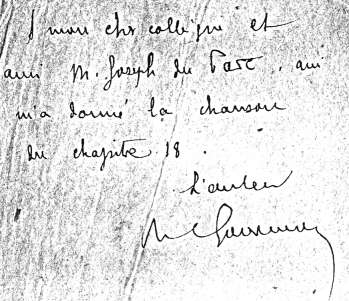 à mon cher collègue et
ami M. Joseph du Parc, qui
m'a donné la chanson
du chapitre 18.
L'auteur